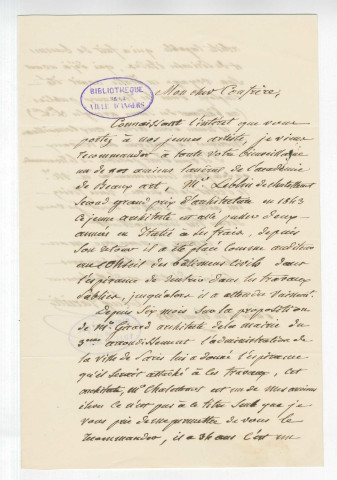 BIBLIOTHÈQUE
DE LA
VILLE D'ANGERS
Mon cher Confrère,
Connaissant l'intérêt que vous
portez à nos jeunes artistes, je viens
recommander à toute votre bienveillance
un de nos anciens lauréats de l'académie
de Beaux art, Mr Leblin de Chatellenot
second grand prix d'architecture en 1863
ce jeune architecte est allé passer deux
années en Italie à ses frais, depuis
son retour il a été placé comme auditeur
au Conseil des bâtiments civils dans
l'espérance de rentrer dans les travaux
publics, jusqu'alors il a attendu vainement.
Depuis six mois sur la proposition
de Mr Girard architecte de la mairie du
3me arrondissement l'administration de
la ville de Paris lui a donné l'espérance
qu'il serait attaché à ses travaux, cet
architecte, Mr est un de mes anciens
ce n'est pas à ce titre seul que je
vous prie de me permettre de vous le
recommander, il a 34 ans c'est un